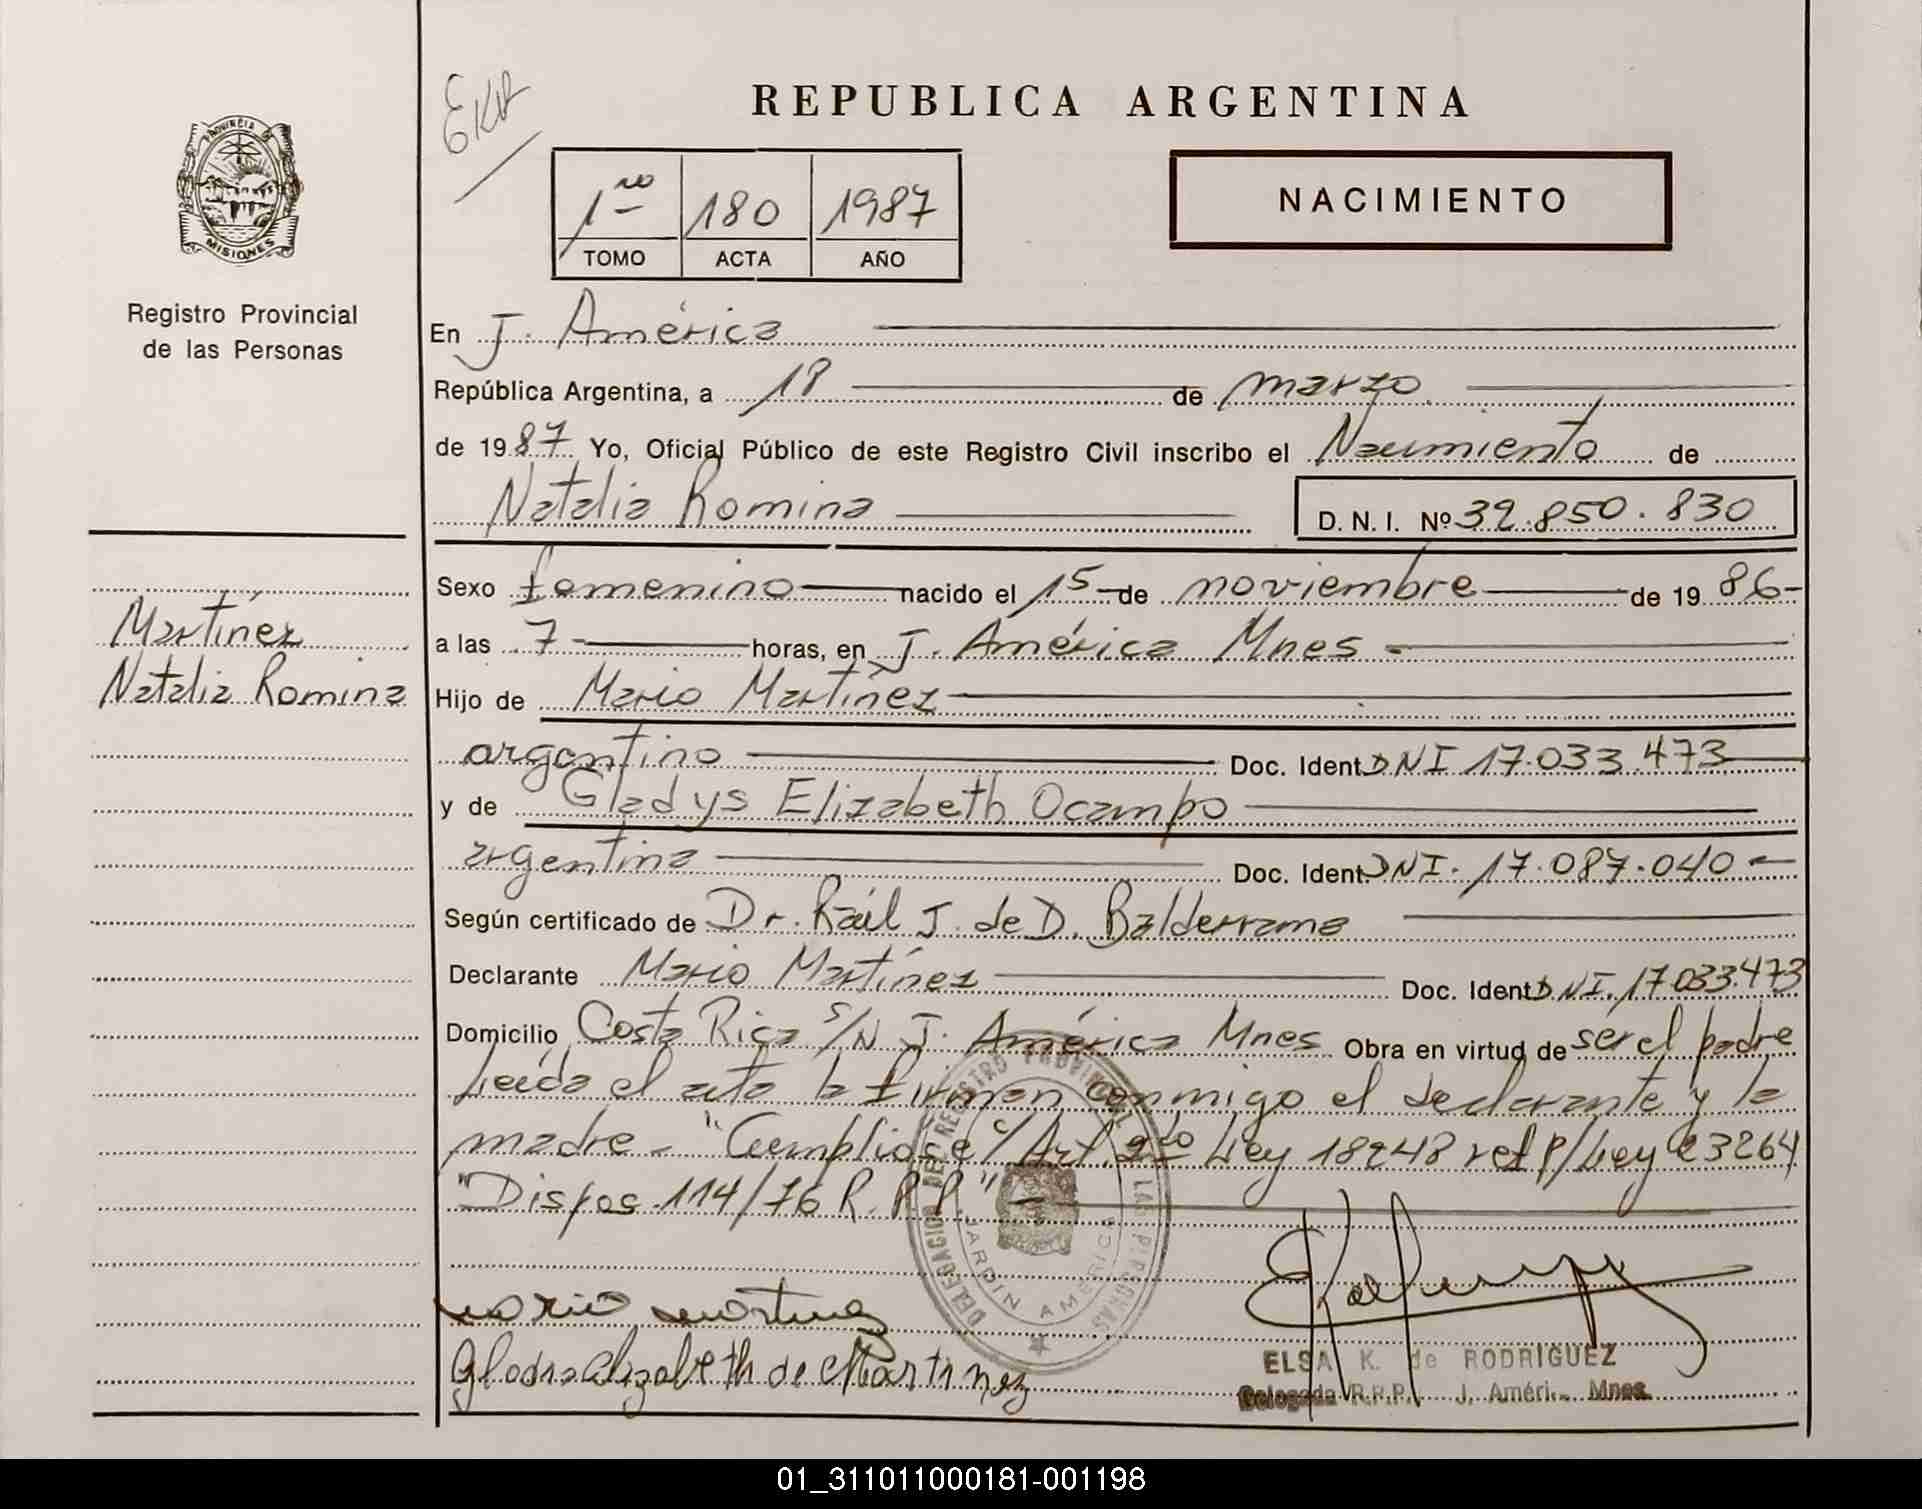 EKR
REPUBLICA ARGENTINA
PROVINCIA
MISIONES
Registro Provincial
de las Personas
1ro 180 1987
TOMO ACTA AÑO
NACIMIENTO
En J. América
República Argentina, a 18 de marzo
de 1987 Yo, Oficial Público de este Registro Civil inscribo el Nacimiento de
Natalia Romina D. N. I. Nº 32.850.830
Martínez
Natalia Romina
Sexo femenino nacido el 15 de noviembre de 19 86
a las 7 horas, en J. América Mnes
Hijo de Mario Martínez
argentino Doc. Ident. DNI 17.033.473
y de Gladys Elizabeth Ocampo
argentina Doc. Ident. DNI. 17.087.040
Según certificado de Dr. Raúl J. de D. Balderrama
Declarante Mario Martínez Doc. Ident. DNI. 17.033.473
Domicilio Costa Rica S/N J. América Mnes Obra en virtud de ser el padre
Leída el acta la firman conmigo el declarante y la
madre - "Cumpliose c/ Art. 2do Ley 18248 ref p/ Ley 23264
"Dispos. 114/76 R.P.P." -
DELEGACION DEL REGISTRO PROVINCIAL DE LAS PERSONAS
JARDIN AMERICA
Mario Martinez
Elizabeth de Martinez
ELSA K. de RODRIGUEZ
Delegada R.R.P. J. Améri Mnes.
01_311011000181-001198